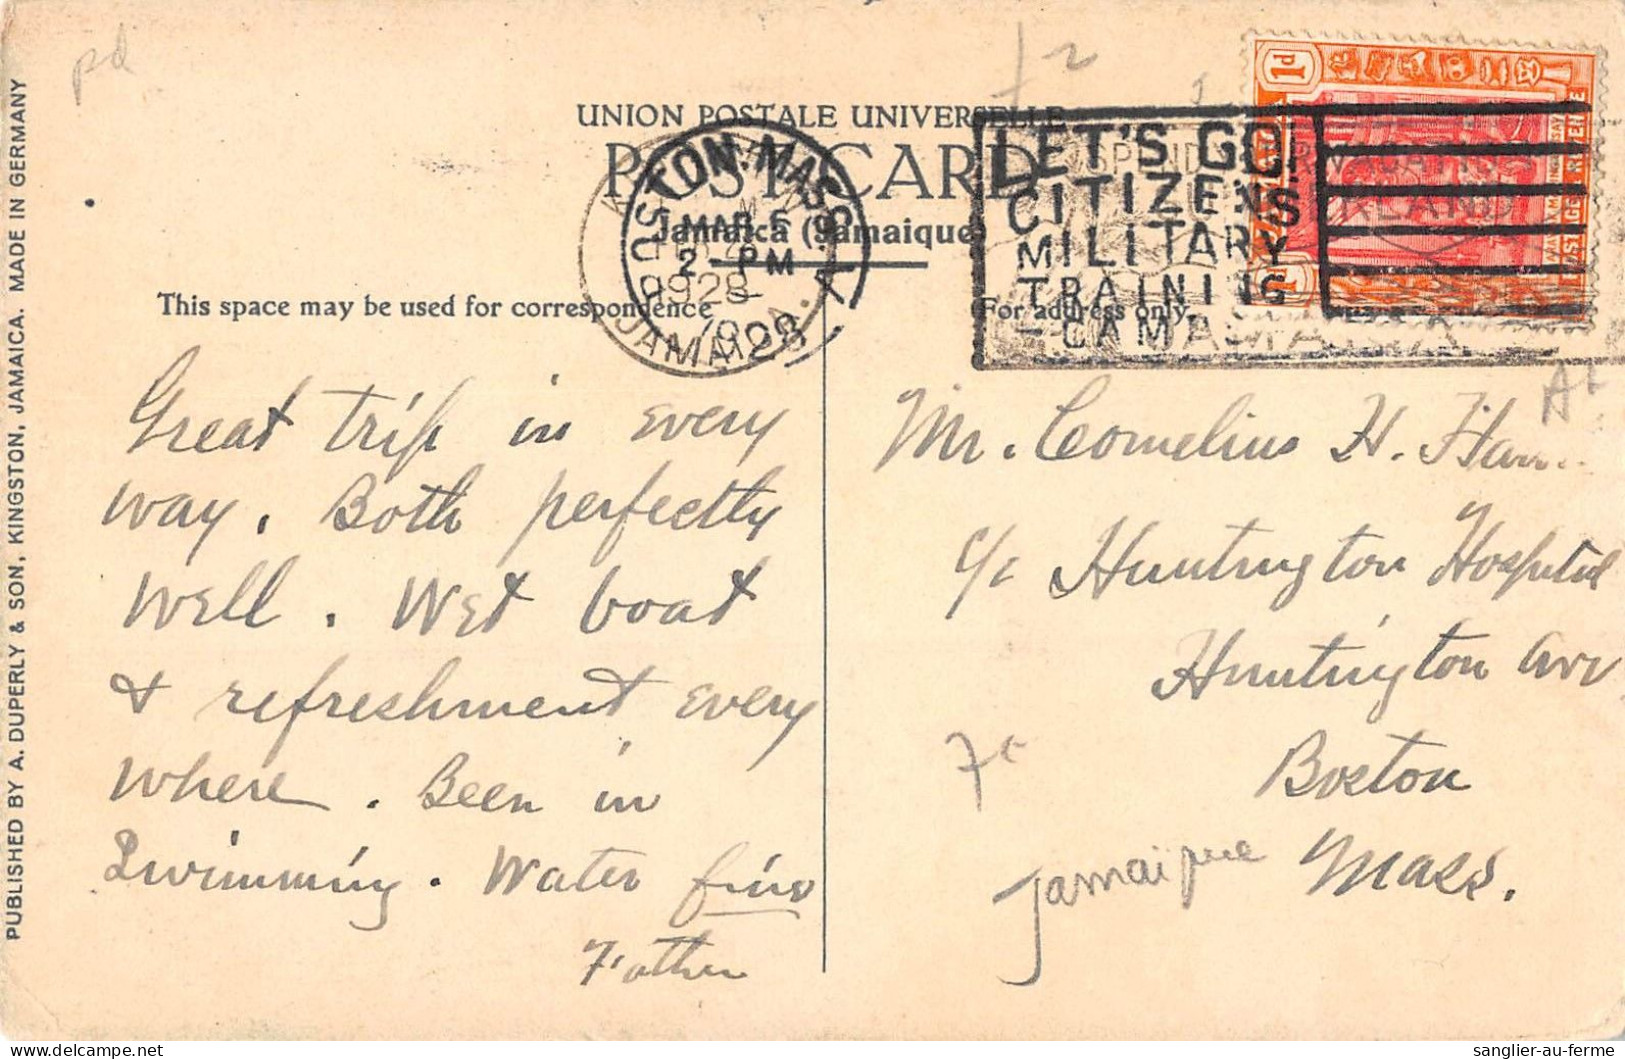 pd
UNION POSTALE UNIVERSELLE
POST CARD
Jamaica (Jamaique)
This space may be used for correspondence
For address only.
BOSTON. MASS.
MAR 5 9
2 - PM
1928
JAMAICA.
LET'S GO!
CITIZENS
MILITARY
TRAINING
CAMP
JAMAICA
1d
1d
At
Great trip in every
way. Both perfectly
well. Wet boat
& refreshment every
where. Been in
Swimming. Water fine
Father
Mr. Cornelius H.
c/o Huntington Hospital
Huntington Ave
Boston
Mass.
Jamaique
PUBLISHED BY A. DUPERLY & SON, KINGSTON, JAMAICA. MADE IN GERMANY
sanglier-au-ferme